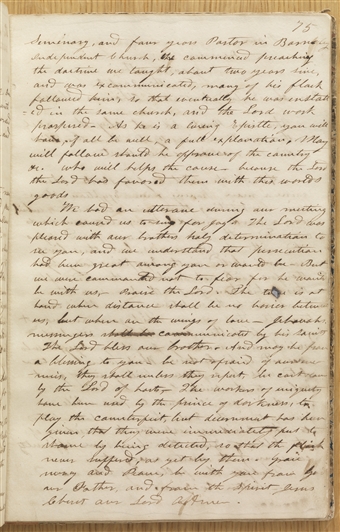 75
Seminary, and four years Pastor in Barns
Independent Church, commenced preaching
the doctrine we taught, about two years since,
and was excommunicated, many of his flock
followed him, so that eventually he was reinstat
ed in the same church, and the Lord's work
prospered. As he is a living Epistle, you will
have, if all be well, a full explanation. Many
will follow should he approve of the country &
&c. who will help the cause because the Lord
the Lord has favored them with this world's
goods.
We had an utterance during our meeting
which caused us to for joy. The Lord was
pleased with our brother's holy determination to
see you, and we understand that persecution
had been great among you or would be. But
we were commanded not to fear for he would
be with us. Praise the Lord. The time is at
hand when distance shall be no barrier between
us, but when on the wings of love Jehovah's
messengers communicated by his saints
The Lord bless our brother. And may he prove
a blessing to you. be not afraid of our ene
mies, they shall unless they repent, be cast down
by the Lord of hosts. The workers of iniquity
have been used by the prince of darkness, to
play the counterfeit, but discernment has been
given that they were immediately put to
shame by being detected, so that the flock
never suffered as yet by them. Grace
mercy and Peace be with you from God
our Father, and from the Spirit Jesus
Christ our Lord Amen.